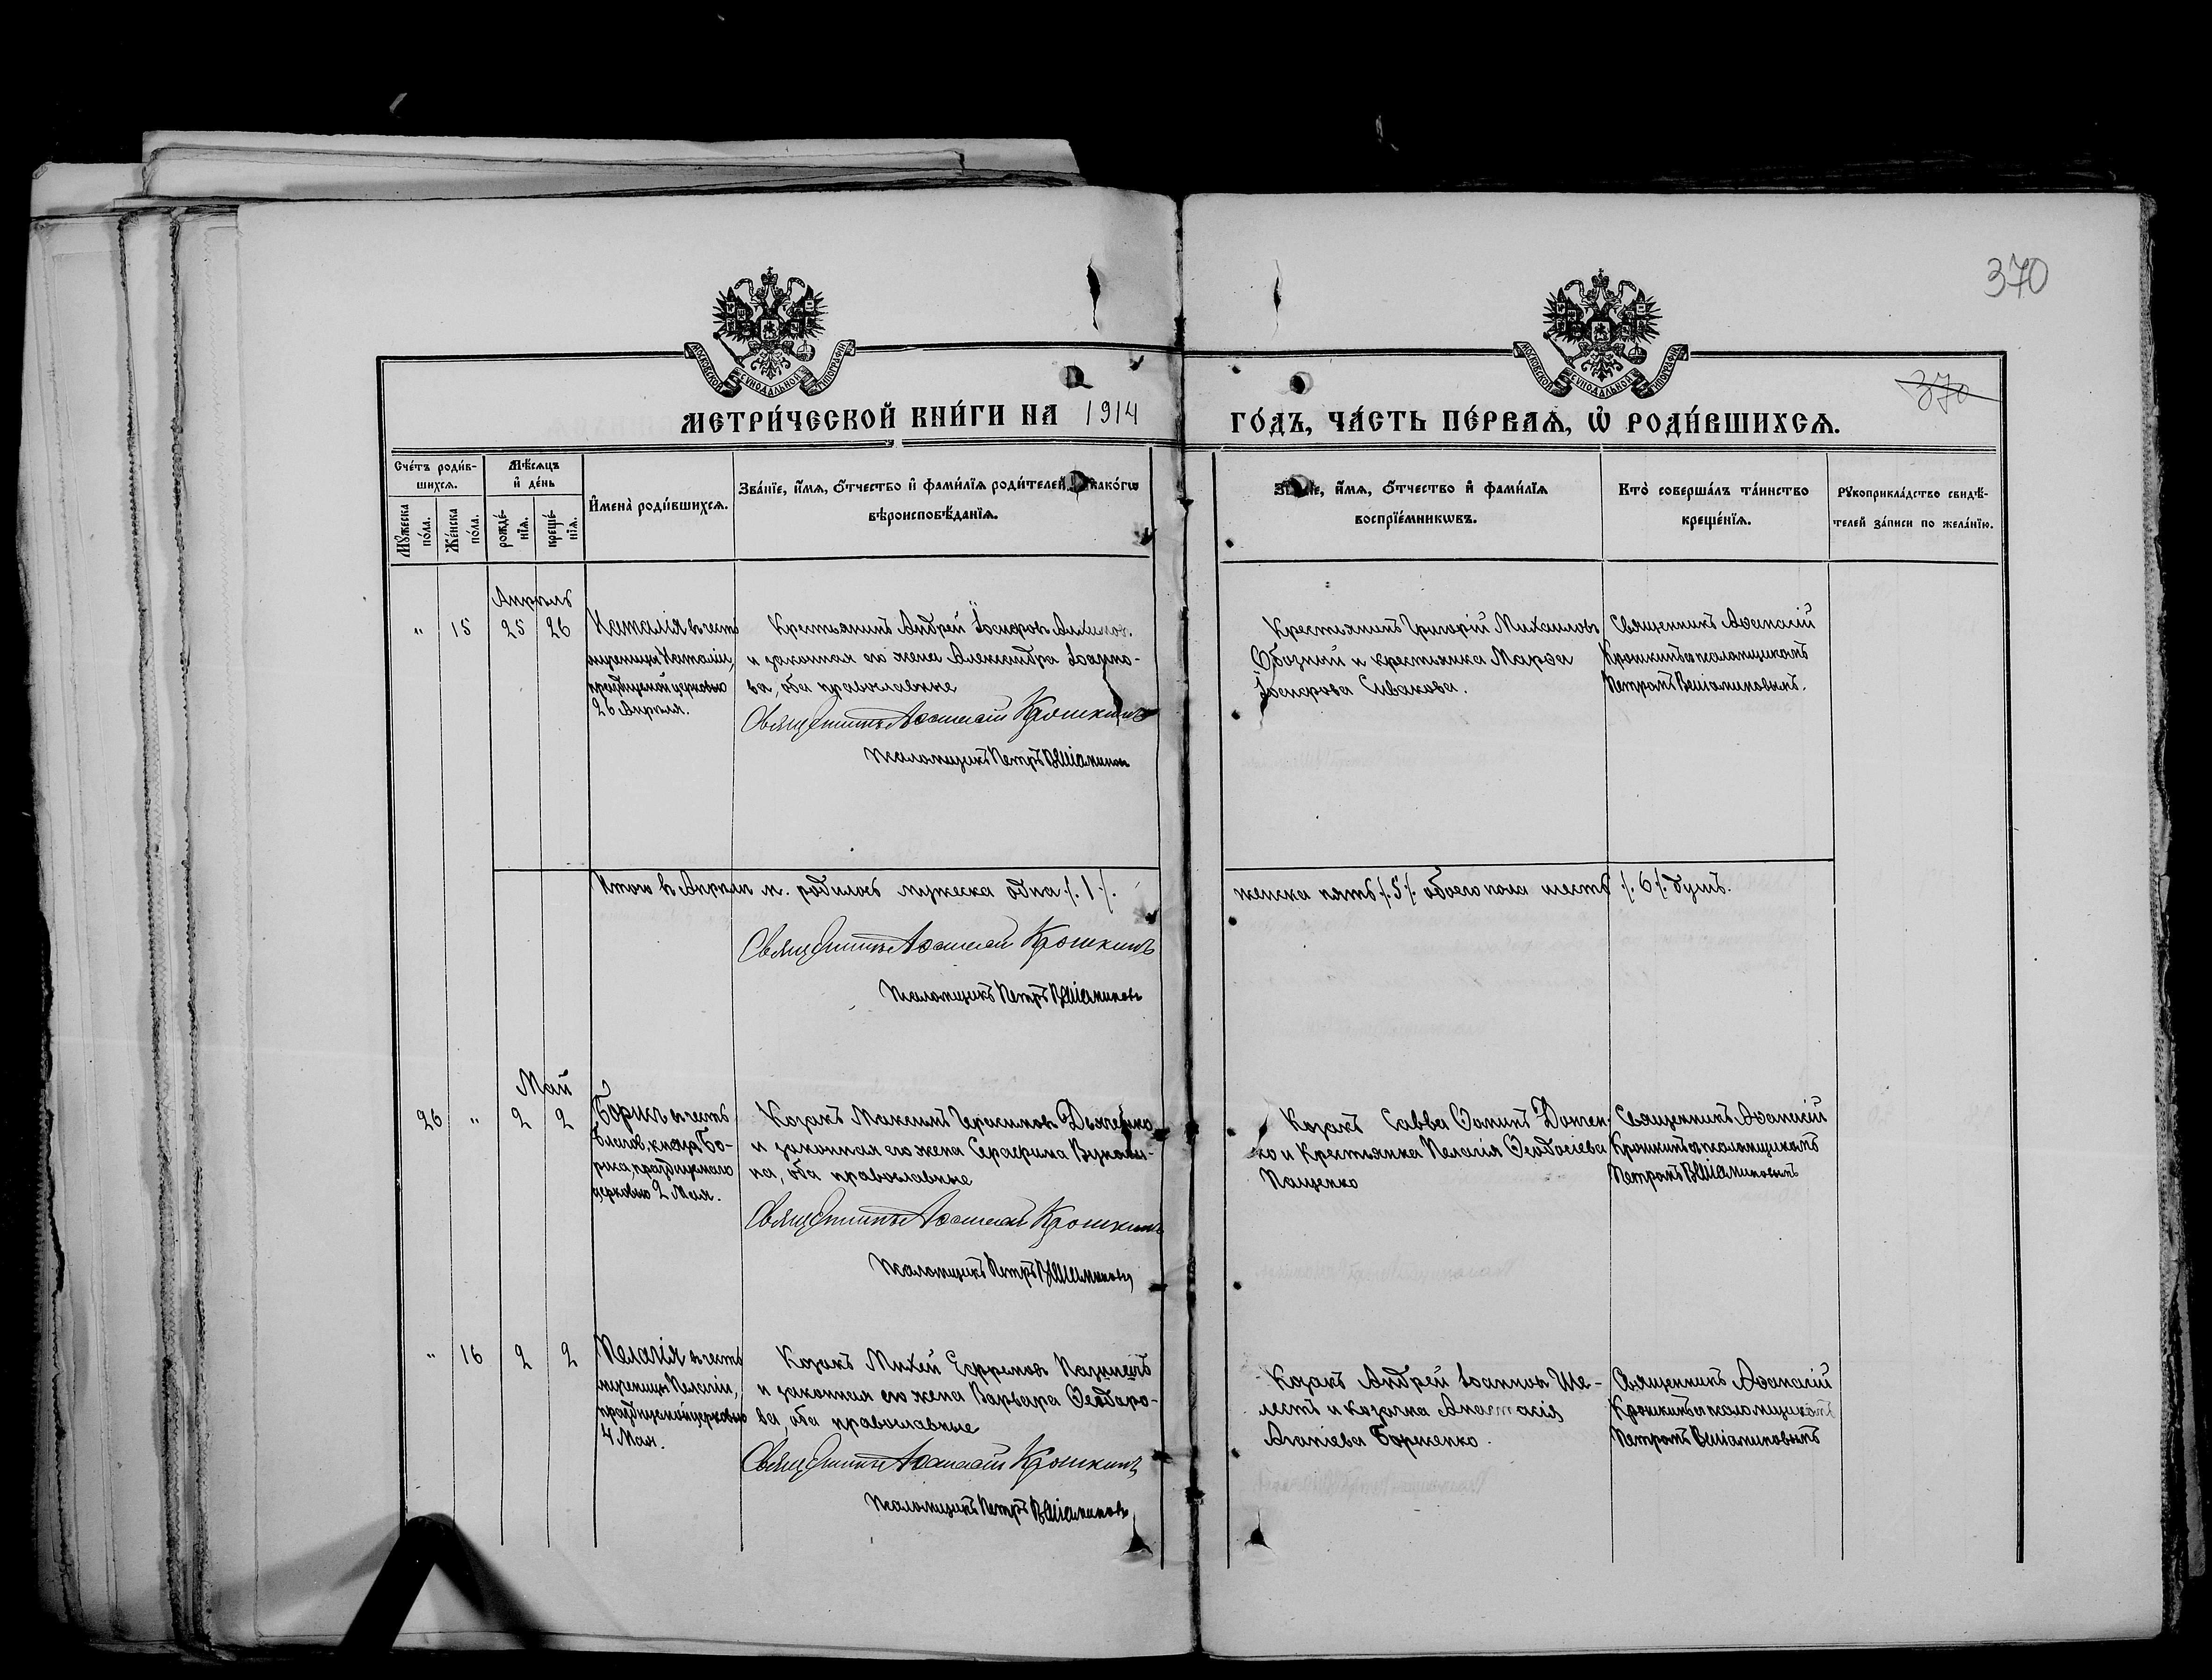 370
МОСКОВСКОЙ СѴНОДАЛЬНОЙ ТИПОГРАФІИ
МОСКОВСКОЙ СѴНОДАЛЬНОЙ ТИПОГРАФІИ
370
МЕТРИ́ЧЕСКОЙ КНИ́ГИ НА 1914
ГО́ДЪ, ЧА́СТЬ ПЕ́РВАѦ, Ѡ҆ РОДИ́ВШИХСѦ.
Сче́тъ роди́в-
шихсѧ.
Мꙋ́жеска по́ла.
Же́нска по́ла.
Мѣ́сѧцъ
и҆ де́нь
рожде́-
нїѧ.
креще́-
нїѧ.
И҆мена̀ роди́вшихсѧ.
Зва́нїе, и҆́мѧ, ѻ҆́тчество и҆ фами́лїѧ роди́телей, како́гѡ
вѣроисповѣ́данїѧ.
и҆́мѧ, ѻ҆́тчество и҆ фами́лїѧ
воспрїе́мникѡвъ.
Кто̀ соверша́лъ та́инство
креще́нїѧ.
Рꙋкоприкла́дство свидѣ́-
телей за́писи по жела́нїю.
Апрѣль
" 15 25 26
Наталія въ честь
мученицы Наталіи,
празднуемой церковью
26 Апрѣля.
Крестьянинъ Андрей Іосифовъ
и законная его жена Александра Іоанно-
ва, оба православные
Священникъ Аѳанасій Крошкинъ
Псаломщикъ Петръ Веніаминовъ
Крестьянинъ Григорій Михаиловъ
Обозный и крестьянка Марѳа
Іосифова Сивакова.
Священникъ Аѳанасій
Крошкинъ съ псаломщикомъ
Петромъ Веніаминовымъ.
Итого въ Апрѣлѣ м. родилось мужеска одна /.1/.
женска пять /.5/. обоего пола шесть /.6/. душъ.
Священникъ Аѳанасій Крошкинъ
Псаломщикъ Петръ Веніаминовъ
Май
26 " 2 2
Борисъ въ честь
благов. князя Бо-
риса, празднуемаго
церковью 2 Мая.
Козакъ Максимъ Герасимовъ
и законная его жена Серафима Вуколи-
на, оба православные
Священникъ Аѳанасій Крошкинъ
Псаломщикъ Петръ Веніаминовъ
Козакъ Савва Ѳоминъ Дотен-
ко и Крестьянка Пелагія Ѳеодосіева
Пащенко
Священникъ Аѳанасій
Крошкинъ съ псаломщикомъ
Петромъ Веніаминовымъ
" 16 2 2
Пелагія въ честь
мученицы Пелагіи,
празднуемой церковью
4 Мая.
Козакъ Михей Ефремовъ
и законная его жена Варвара Ѳеодоро-
ва, оба православные
Священникъ Аѳанасій Крошкинъ
Псаломщикъ Петръ Веніаминовъ
Козакъ Андрей Іоанновъ Ше-
лестъ и козачка Анастасія
Агапіева Борженко.
Священникъ Аѳанасій
Крошкинъ съ псаломщикомъ
Петромъ Веніаминовымъ